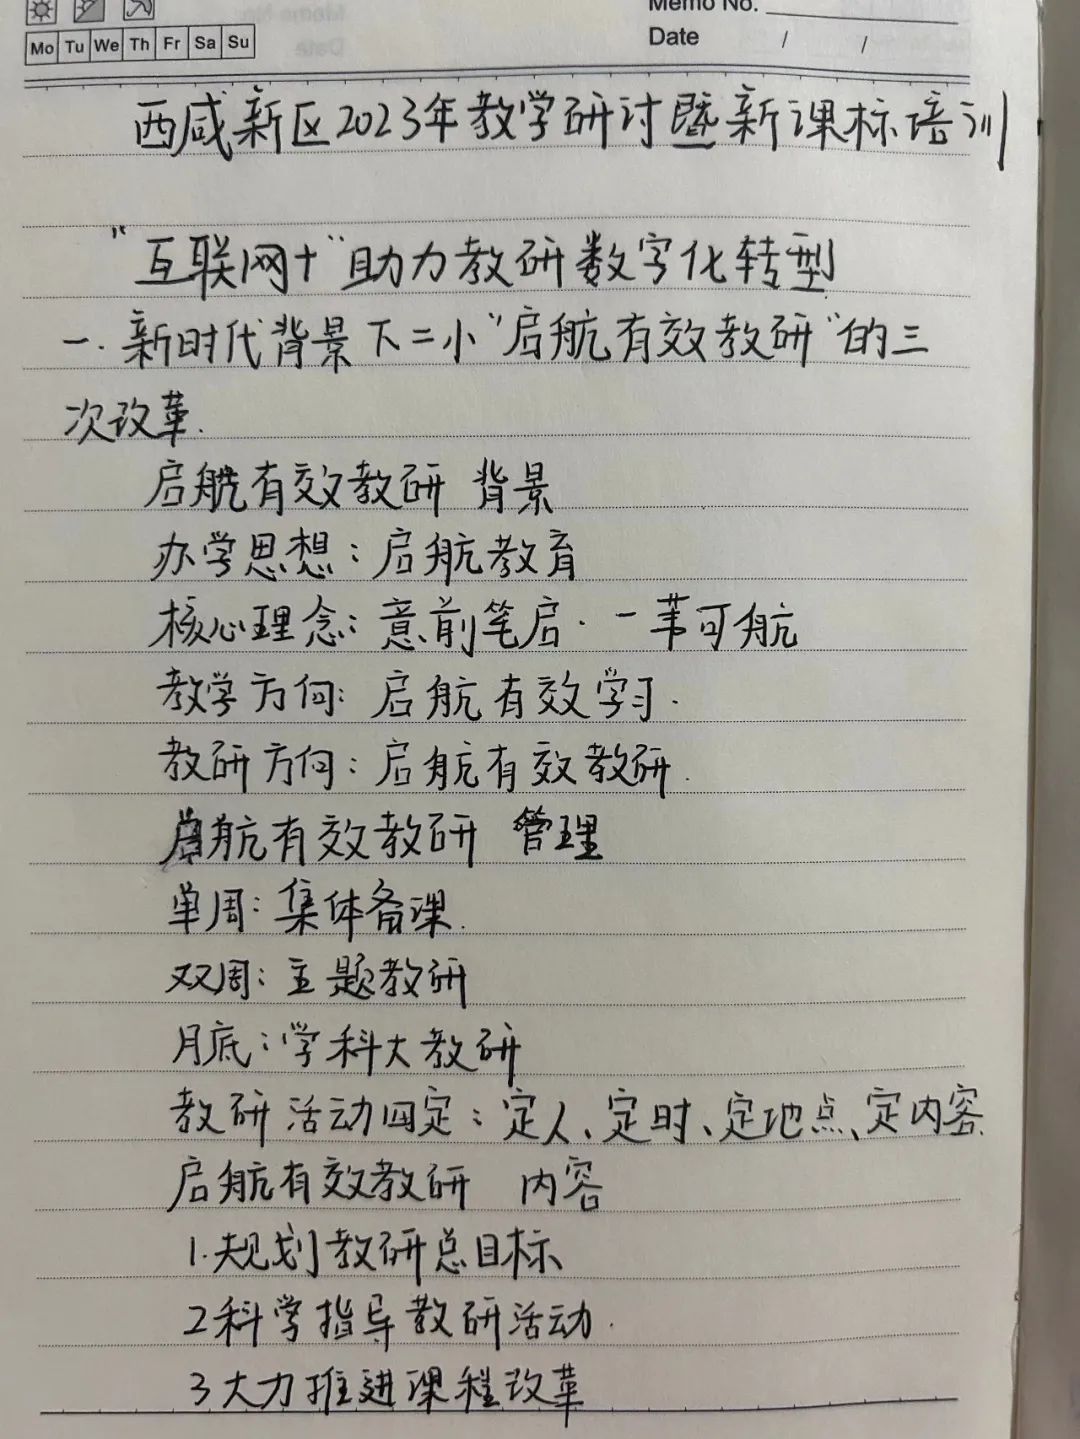 Memo No.
Mo Tu We Th Fr Sa Su
Date / /
西咸新区2023年教学研讨暨新课标培训
"互联网+"助力教研数字化转型
一.新时代背景下二小"启航有效教研"的三
次改革.
启航有效教研 背景
办学思想:启航教育
核心理念:意前笔启.一苇可航
教学方向:启航有效学习.
教研方向:启航有效教研.
启航有效教研 管理
单周:集体备课.
双周:主题教研
月底:学科大教研
教研活动四定:定人、定时、定地点、定内容.
启航有效教研 内容
1.规划教研总目标
2科学指导教研活动.
3大力推进课程改革